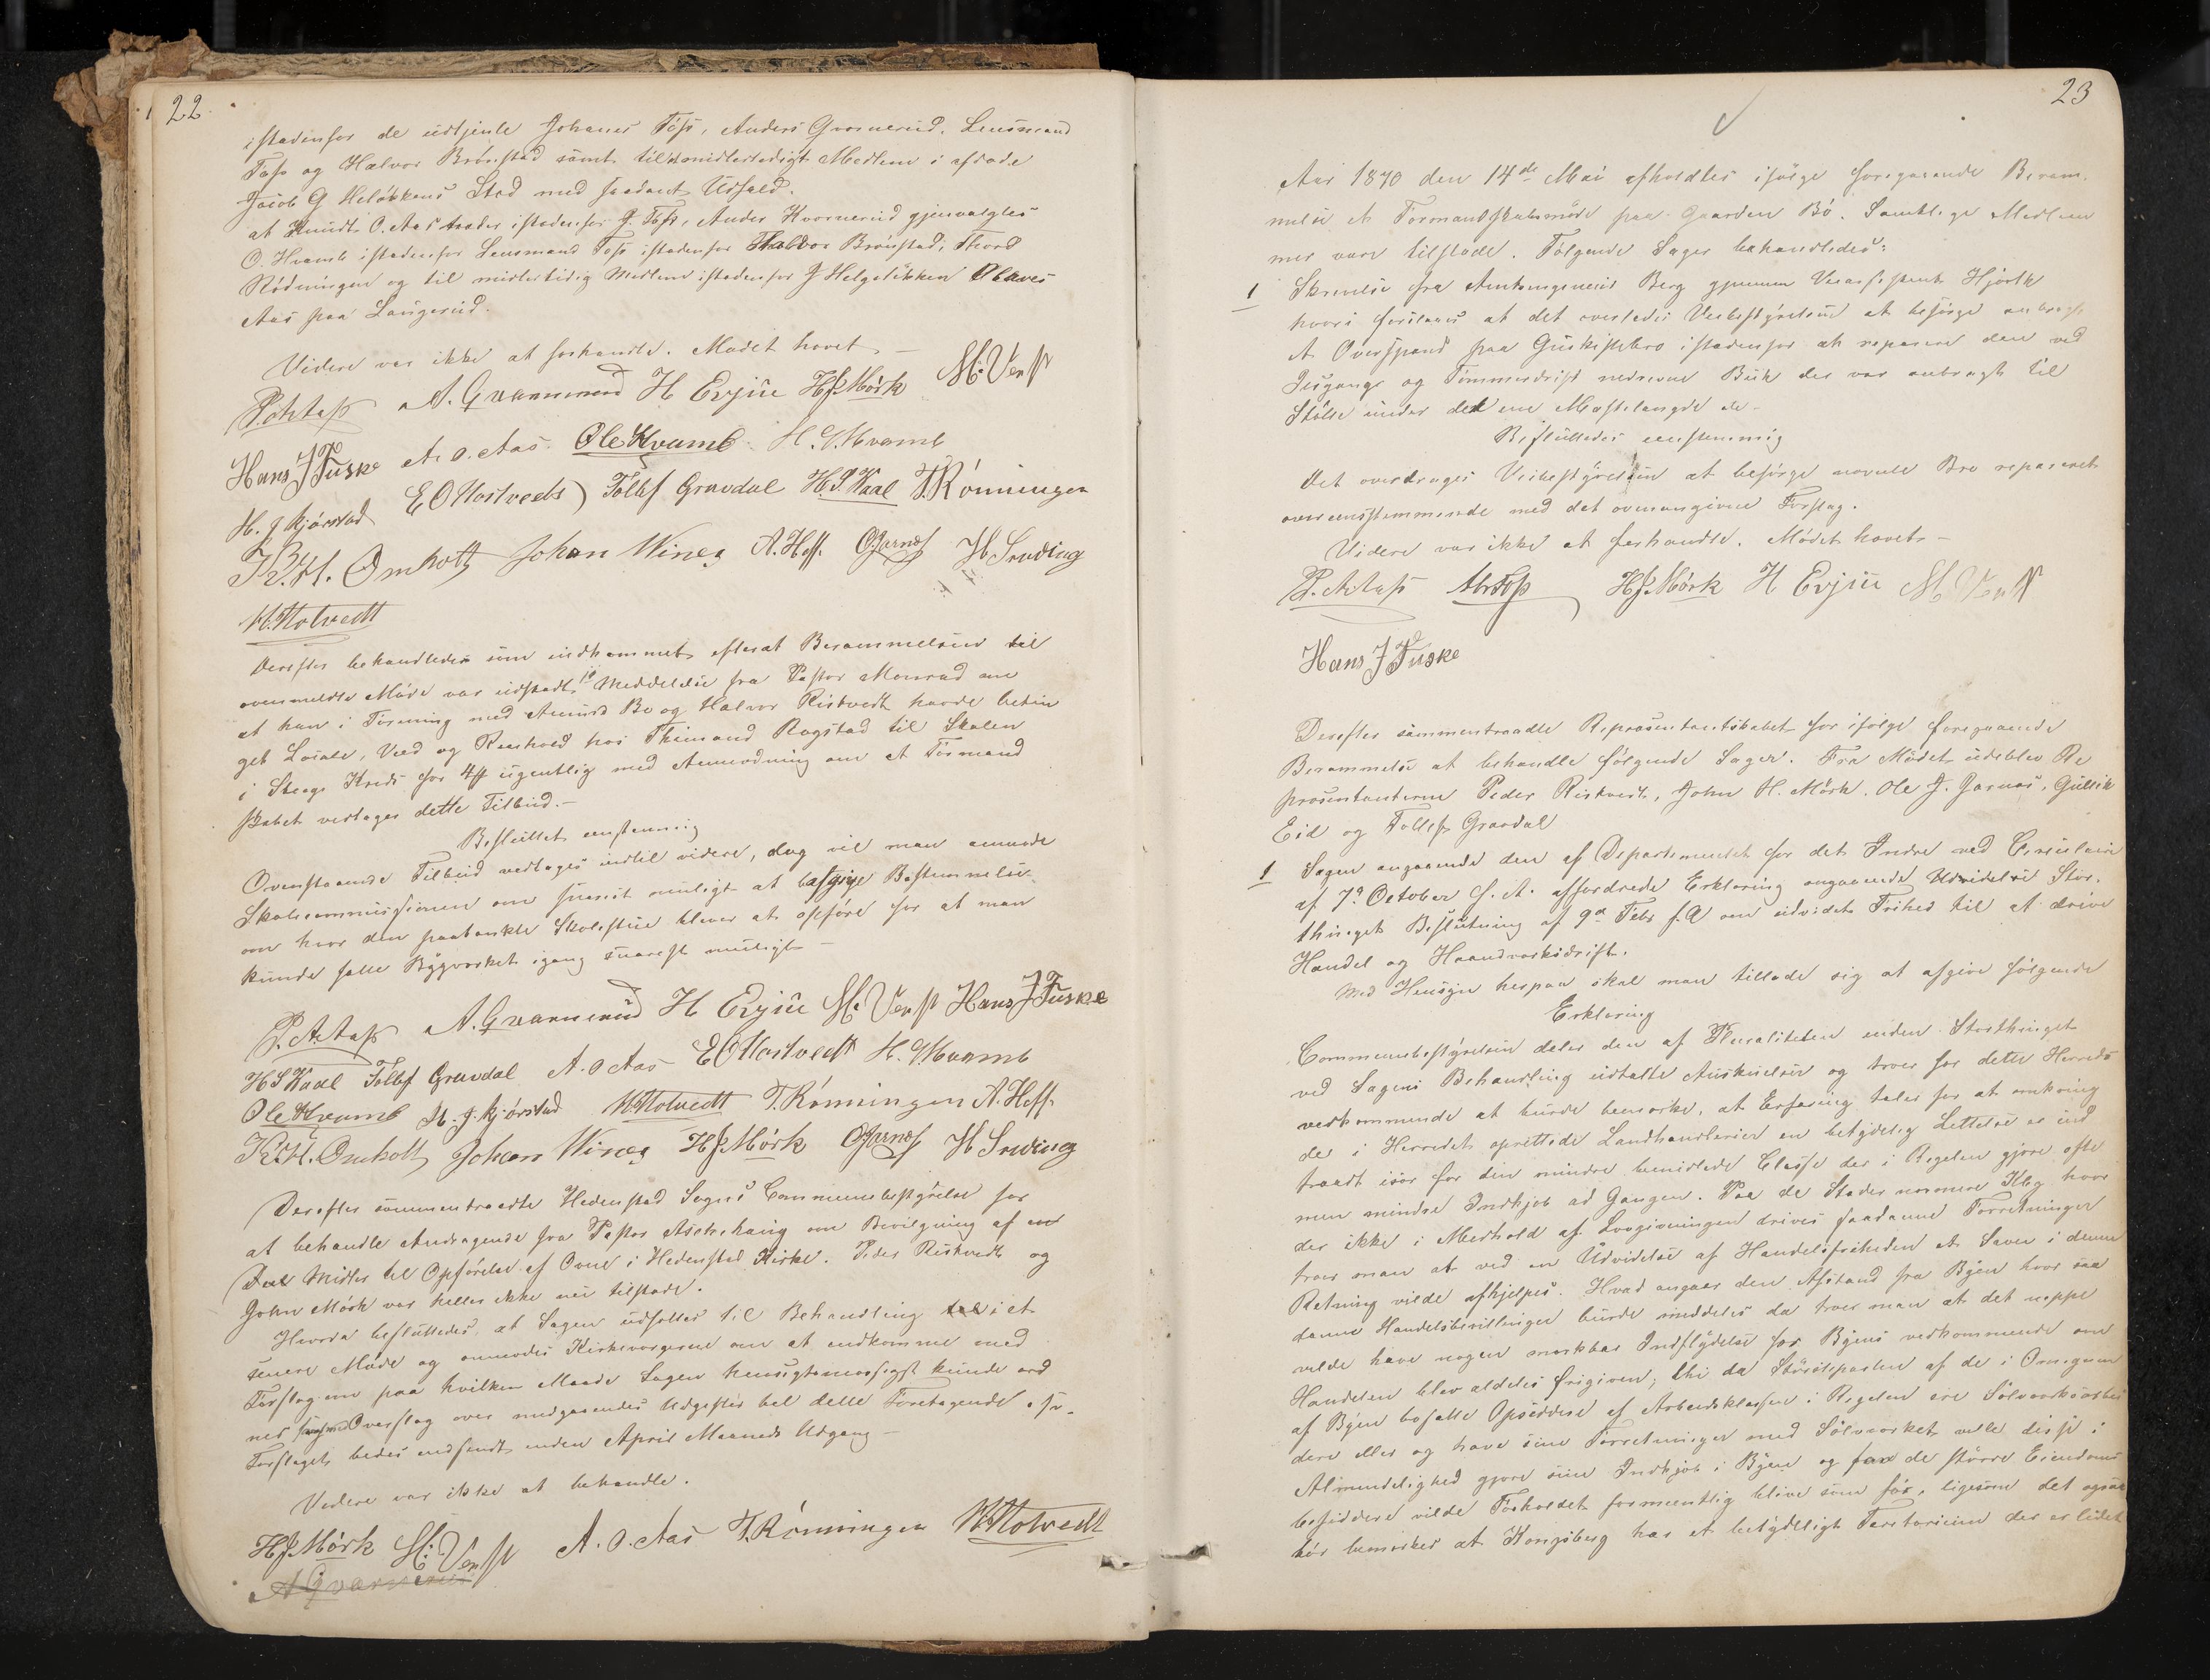 22.
istedenfor de udtjente Johanes Foss, Anders Gvarnerud, Lensmand
Foss og Halvor Brönstad samt til midlertidigt Medlem i afdøde
Jacob G Helökkens Sted med saadant Udfald.
at Knudt O. Aas træder istedenfor J. Foss, Anders Kvarnerud gjenvalgtes
O. Kvamb istedenfor Lensmand Foss istedenfor Halvor Brönstad, Thord
Rödningen og til midlertidig Medlem istedenfor J Helgelökken Olaves
Aas paa Laugerud.
Videre var ikke at forhandle. Mødet hævet. —
A. Gvarnerud H Evju H J Mörk
Hans J Tuske A. O. Aas. Ole Kvamb H. Kvamb
H. J. Kjörstad E O Mostvedt Tollef Gravdal H. S. Kaal T. Rönningen
K. H. Omholt Johan Wines A. Hoff. O Jarnæs H Snöding
Derefter behandledes som indkommet efterat Berammelsen til
ovenmeldte Möde var udstedt, 1o Meddelelse fra Pastor Monrad om
at han i Forening med Amund Bø og Halvor Ristvedt havde betin
get Locale, Ved og Reenhold hos Thimand Rogstad til Skolen
i Skoge Kreds for 4 ugentlig med Anmodning om at Formand
skabet vedtager dette Tilbud. —
Besluttet eenstemmig
Ovenstaaende Tilbud vedtages indtil videre, dog vil man anmode
Skolecommissionen om snarest muligt at afgive Bestemmelse
om hvor den paatænkte Skolestue bliver at opføre for at man
kunde faae Bygværket igang snarest muligt —
A. Gvarnerud H Evju Hans J Tuske
H S Kaal Tollef Gravdal A. O Aas E O Mostvedt H. Kvamb
Ole Kvamb H. J. Kjörstad T. Rönningen A. Hoff.
K. H. Omholt Johan Wines H J Mörk O Jarnæs H Snöding
Derefter sammentraadte Hedenstad Sogns Communebestyrelse for
at behandle Andragende fra Pastor Aschehaug om Bevilgning af en
Deel Midler til Opførelse af Ovne i Hedenstad Kirke. Peder Ristvedt og
John Mörk var heller ikke nu tilstede.
Hvorda besluttedes, at Sagen udsettes til Behandling i et
senere Møde og anmodes Kirkeværgerne om at indkomme med
Forslag om paa hvilken Maade Sagen hensigtsmæssigst kunde ord
nes samt Overslag over medgaaende Udgifter ved dette Foretagende.
Forslaget bedes indsendt inden April Maaneds Udgang —
Videre var ikke at behandle.
H J Mörk A. O. Aas T. Rönningen
A Gvarnerud
23
Aar 1870 den 14de Mai afholdtes ifølge foregaaende Beram
melse et Formandskabsmöde paa Gaarden Bö. Samtlige Medlem
mer vare tilstede. Følgende Sager behandledes:
1 Skrivelse fra Amtsingenieur Berg gjennem Veiassistent Hjorth
hvori foreslaaes at det overlades Veibestyrelsen at besørge anbragt
et Overspænd paa Guskistebro istedenfor at reparere den ved
Iisgang og Tømmerdrift nedrevne Buk der var anbragt til
Støtte under den ene Mastelængde
Besluttedes eenstemmig
Det overdrages Veibestyrelsen at besørge nævnte Bro repareret
overeensstemmende med det ovenangivne Forslag.
Videre var ikke at forhandle. Mødet hævet —
H J Mörk H Evju
Hans J Tuske
Derefter sammentraadte Repræsentantskabet for ifølge foregaaende
Berammelse at behandle følgende Sager. Fra Mødet udeblev Re
præsentanterne Peder Ristvedt, John H. Mörk, Ole J. Jarnæs, Gullik
Eid og Tollef Gravdal
1 Sagen angaaende den af Departementet for det Indre ved Circulaire
af 7de October f. A. affordrede Erklæring angaaende Stor
thinget Beslutning af 9de Febr f. A om udvidet Frihed til at drive
Handel og Haandværksdrift.
Med Hensyn herpaa skal man tillade sig at afgive følgende
Erklæring
Communebestyrelsen deler den af Pluraliteten inden Storthinget
ved Sagens Behandling udtalte Anskuelse og troer for dette Herreds
vedkommende at burde bemærke, at Erfaring taler for at omkring
der i Herredet oprettede Landhandlerier en betydelig Lettelse er ind
traadt især for den mindre bemidlede Classe der i Regelen gjøre ofte
men mindre Indkjøb ad Gangen. Paa de Steder nærmere Kbg hvor
der ikke i Medhold af Lovgivningen drives saadanne Forretninger
troer man at ved en Udvidelse af Handelsfriheden et Savn i denne
Retning vilde afhjelpes. Hvad angaar den Afstand fra Byen hvor saa
danne Handelsbevillinger burde meddeles da troer man at det neppe
vilde have nogen mærkbar Indflydelse for Byens vedkommende om
Handelen blev aldeles frigiven; thi da Störsteparten af de i Omegnen
af Byen bosatte Opsiddere af Arbeidsklassen i Regelen ere Sölvværksarbei
dere eller og have sine Forretninger med Sölvværket ville disse i
Almindelighed gjøre sine Indkjøb i Byen og for de større Eiendoms
besiddere vilde Forholdet formeentlig blive som før, ligesom det ogsaa
bör bemærkes at Kongsberg har et betydeligt Territorium der er lidet